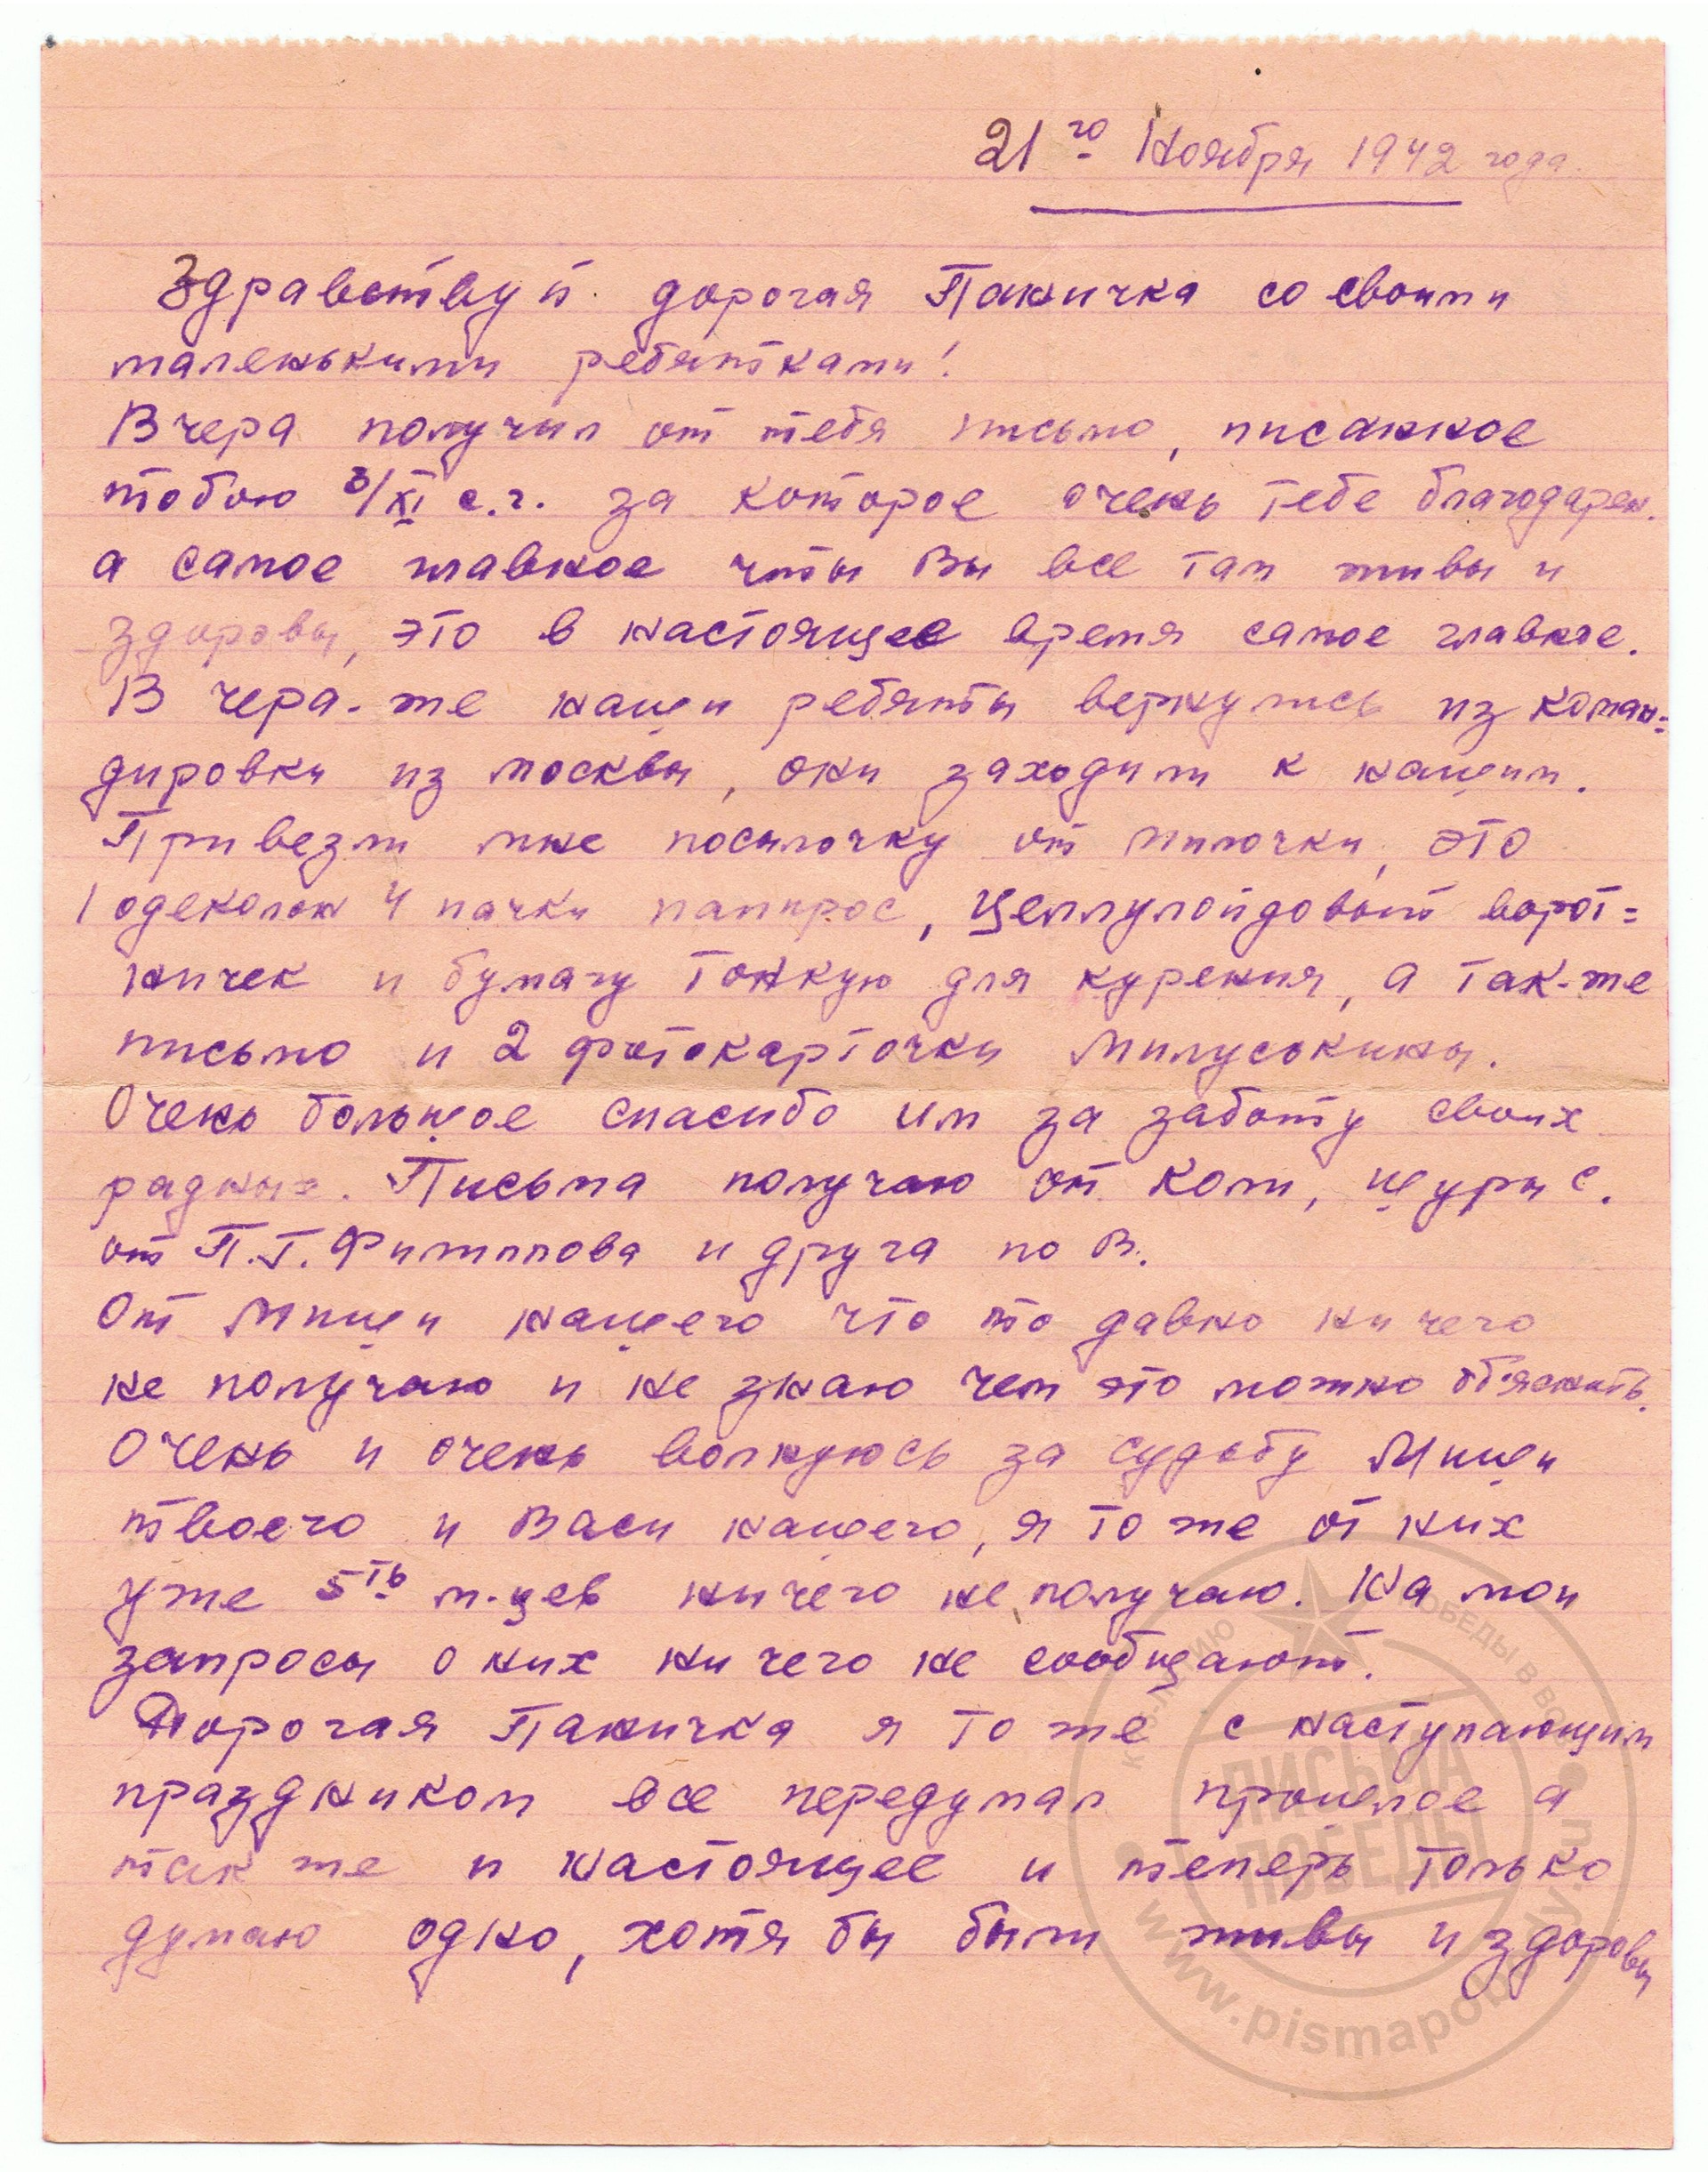 21го Ноября 1942 года.
Здравствуй дорогая Паничка со своими
маленькими ребятками!
Вчера получил от тебя письмо, писанное
тобою 3/XI с.г. за которое очень тебе благодарен.
а самое главное что Вы все там живы и
здоровы, это в настоящее время самое главное.
В чера-же наши ребяты вернулись из коман=
дировки из москвы, они заходили к нашим.
Привезли мне посылочку от Милочки, это
1 одеколон 4 пачки папирос, целлулойдовый ворот=
ничек и бумагу тонкую для курения, а так-же
письмо и 2 фотокарточки Милуськины.
Очень большое спасибо им за заботу своих
радных. Письма получаю от Коли, Шуры С.
от П.Г. Филиппова и друга по В.
От Миши нашего что то давно ни чего
не получаю и не знаю чем это можно об'яснить.
Очень и очень волнуюсь за судьбу Миши
твоего и Васи нашего, я то же от них
уже 5ть м-цев ничего не получаю. На мои
запросы о них ни чего не сообщают.
Дорогая Паничка я то же с наступающим
праздником все передумал прошлое а
так же и настоящее и теперь только
думаю одно, хотя бы были живы и здоровы
ПИСЬМА
ПОБЕДЫ